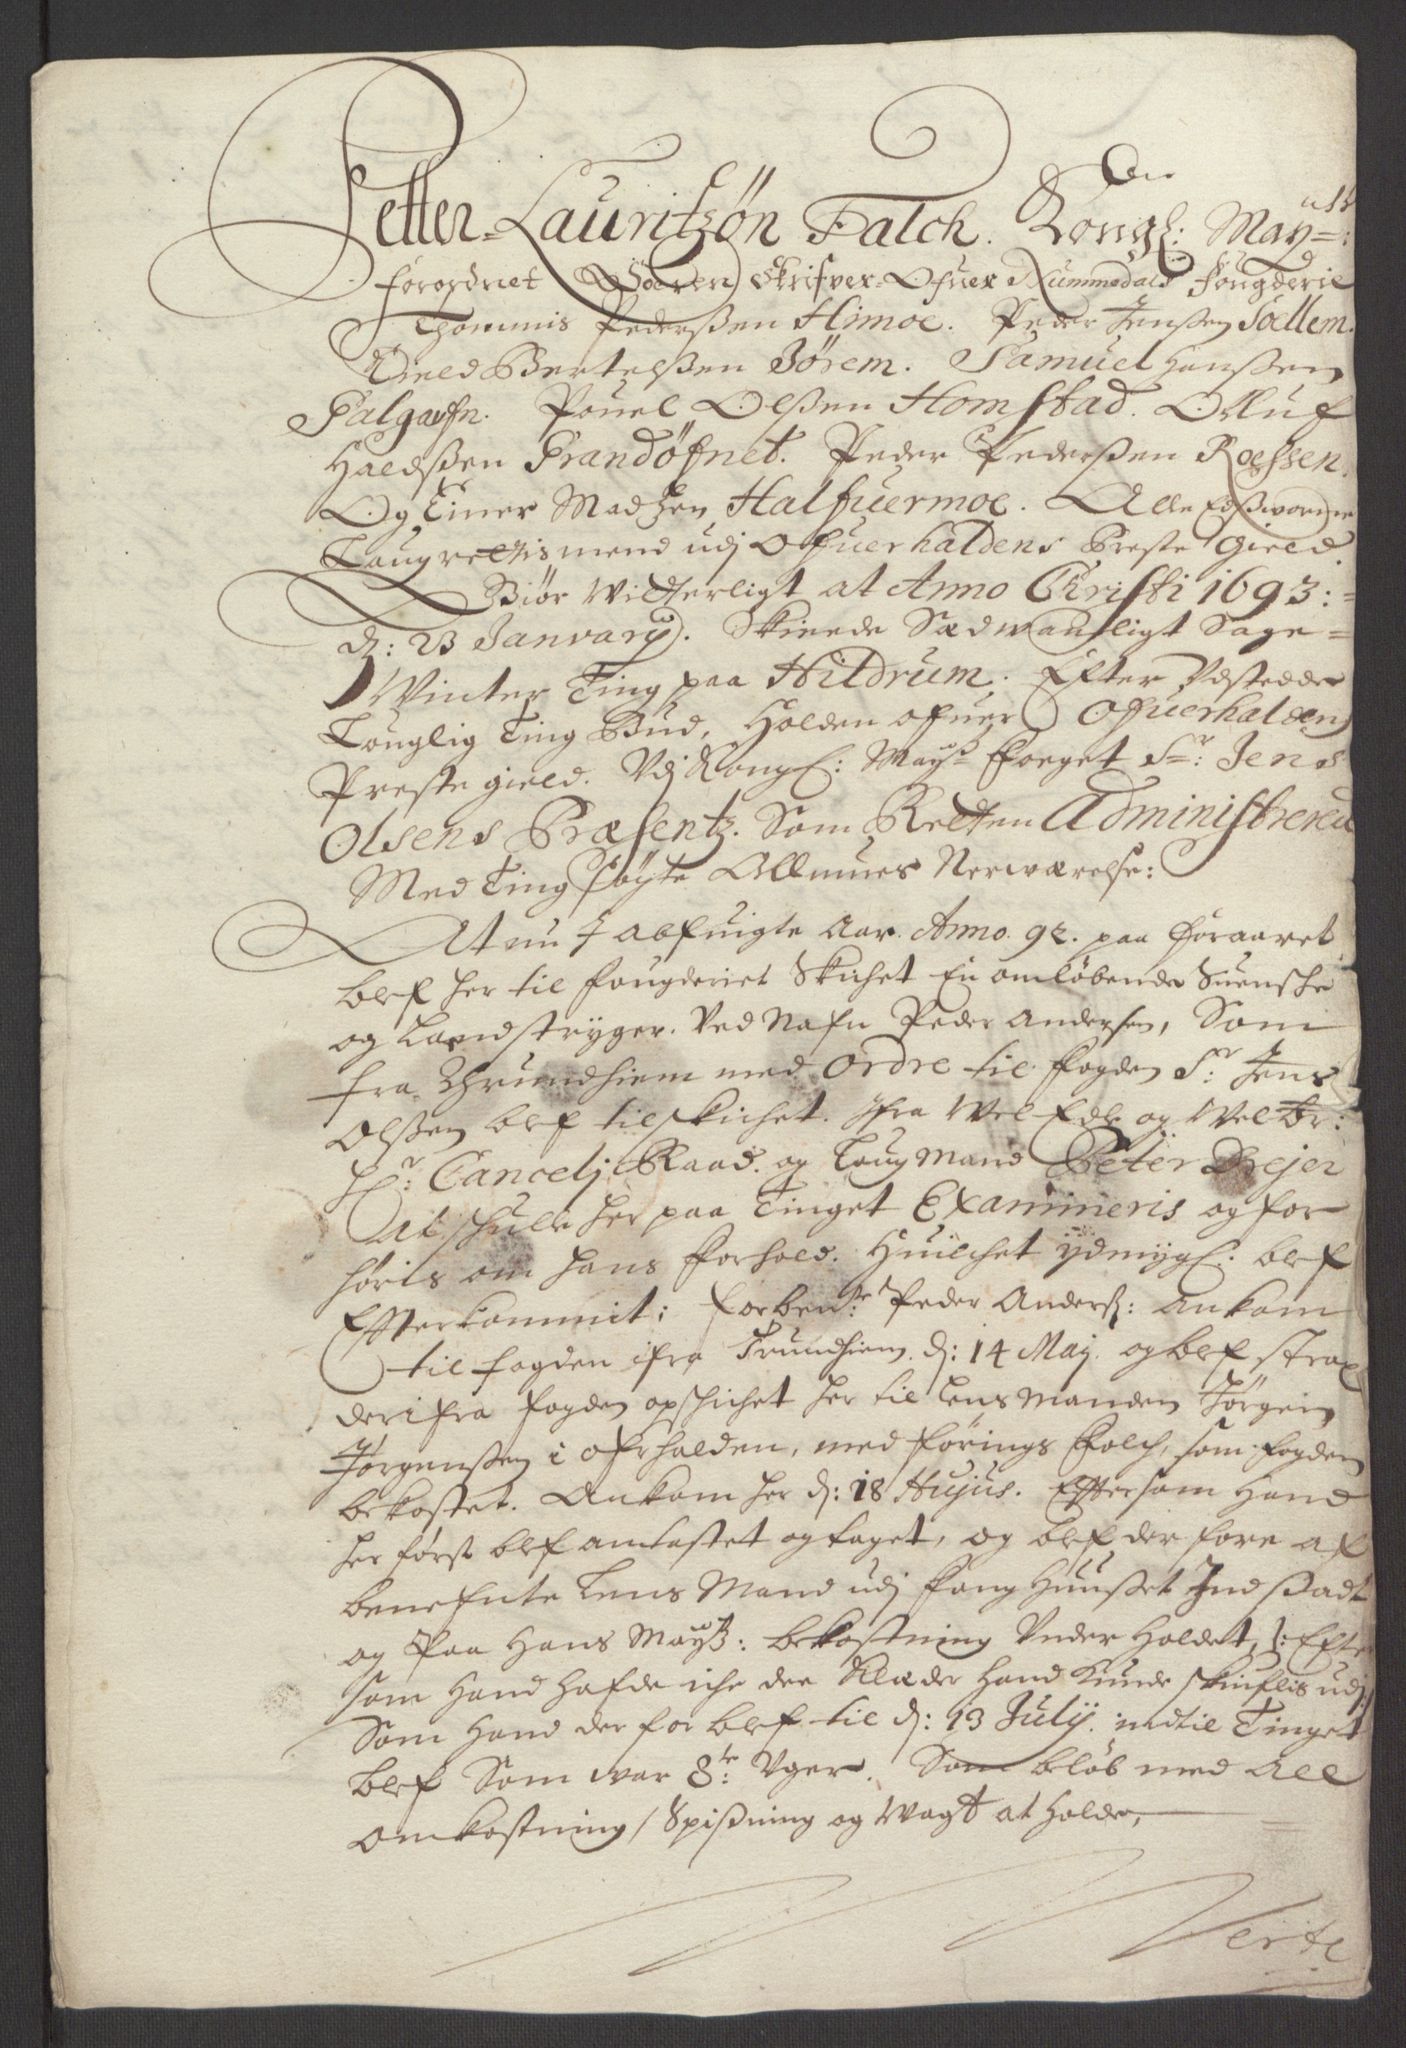 Petter Lauritzøn Falch. Kongl: May:ts
forordnet Soeren Skrifver Ofuer Nummedals fougderie
Thommis Pedersßen Himoe. Peder Jenßen Soellem.
Oield Bertelßen Jørem. Samuel Hanßen
Salgaefn. Pouel Olßen Homstad. Olluf
Haldßen Grandøfnet. Peder Pederßen Roessen.
Og Einer Madzen Halfuermoe. Alle Edßworne
Laugrettis mend udj Ofuerhaldens Preste Gield
Giør Witterligt at Anno Christi 1693:
d: 23 January. Skieede Sædwanligt Sage
Winter Ting paa Hildrum. Efter Udstedde
Louglig Ting Bud, Holden ofuer Ofuerhalden
Preste gield. Udj Kongl: Mayts Foeget Sr: Jens
Olsens Præsentz. Som Retten Administrered
Med Ting søgte Allmues Nerwærelse:
At nu i abfuigte Aar. Anno. 92. paa foraaret
blef her til fougderiet Skichet En omløbende Suensche
og Landstryger. Ved Nafn Peder Andersen, Som
fra Thrundhiem med Ordre til fogden Sr: Jens
Olßen blef tilskichet. Ifra Wel Edle og Welbr:
Hr: Cancelj Raad. og Laug Mand Peter Drejer
At schulle her paa Tinget Examineris og for
høris om hans forhold. Huilchet ydmygl: blef
Efterkommit; forben:te Peder Anderß: ankom
til fogden ifra Trundhiem. d: 14 Maj. og blef strax
derifra fogden opschichet her til Lens Manden Jørgen
Jørgenßen i ofrhalden, med førings Folch, som fogden
bekostet. Ankom her d: 18 Hujus. Effter som Hand
her først blef antastet og taget, og blef der fore af
benefnte Lens Mand udj Fang Huußet Indßadt
og Paa Hans Maytz: bekostning Under Holdet, Efter
som Hand hafde iche dee Klæder Hand kunde skiuflis udj
Som Hand der for blef til d: 13 July. indtil Tinget
blef Som war 8te: Uger. Som bløb med All
omkostning / Spißning og Wagt at Holde,
Verte